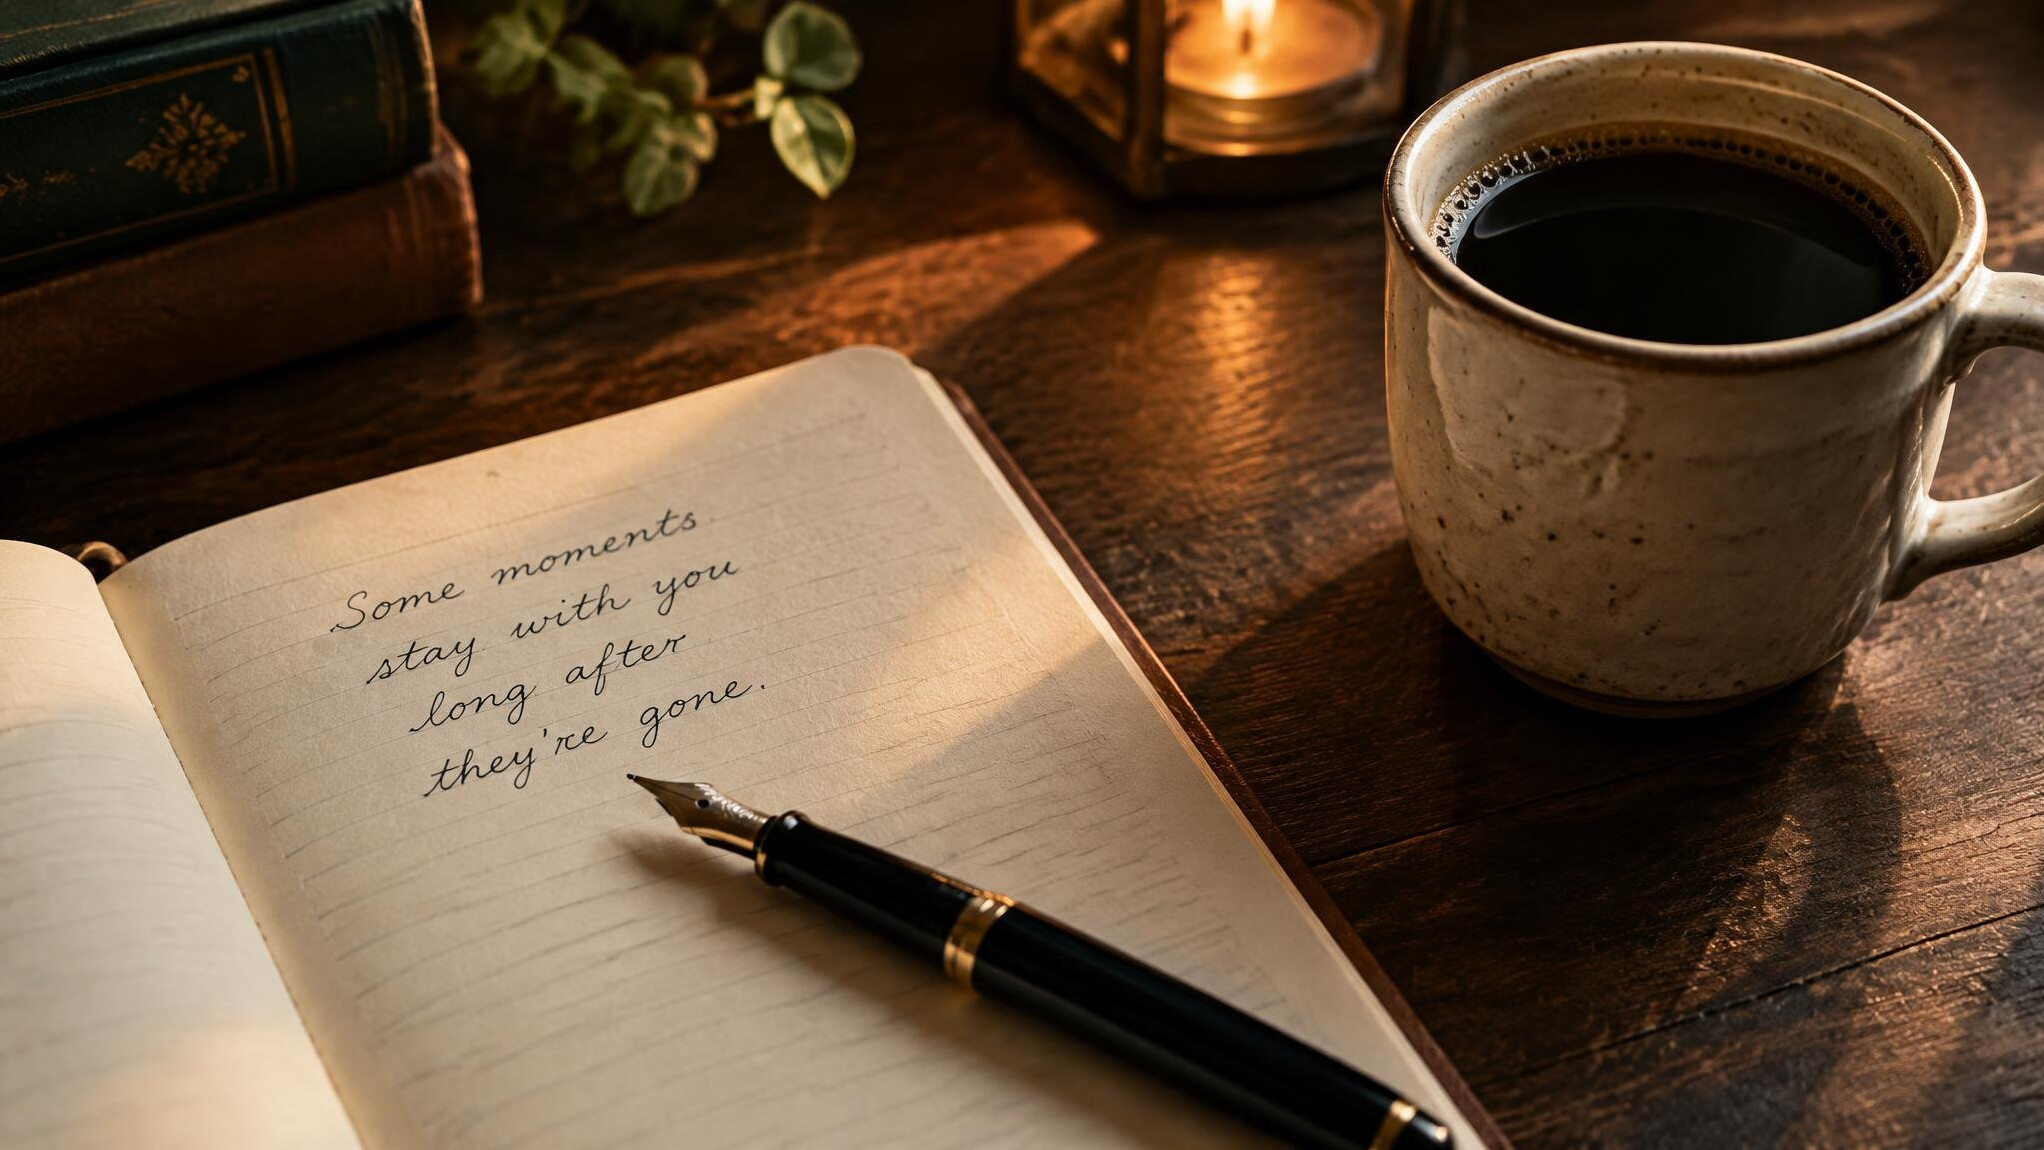 Some moments
stay with you
long after
they're gone.